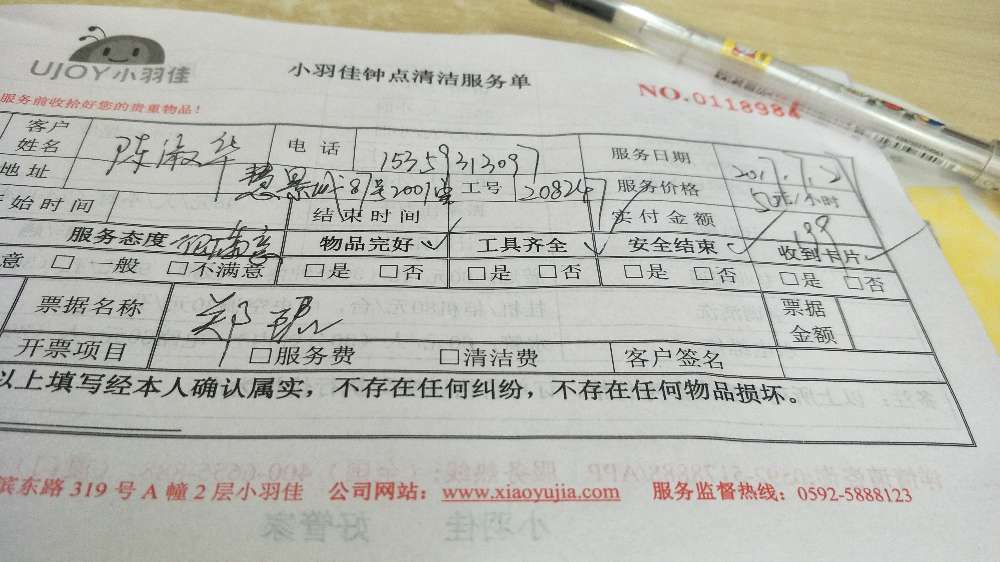 UJOY小羽佳
小羽佳钟点清洁服务单
NO.0118984
服务前收拾好您的贵重物品！
客户姓名 陈淑华 电话 服务日期 2017.7.2
地址 慧景城87号2001室 工号 208247 服务价格 50元/小时
始时间 结束时间 实付金额 199
服务态度 物品完好 工具齐全 安全结束 收到卡片
意 □一般 □不满意 □是 □否 □是 □否 □是 □否 □是 □否
票据名称 票据金额
开票项目 □服务费 □清洁费 客户签名
以上填写经本人确认属实，不存在任何纠纷，不存在任何物品损坏。
滨东路319号A幢2层小羽佳 公司网站：www.xiaoyujia.com 服务监督热线：0592-5888123
小羽佳 好管家